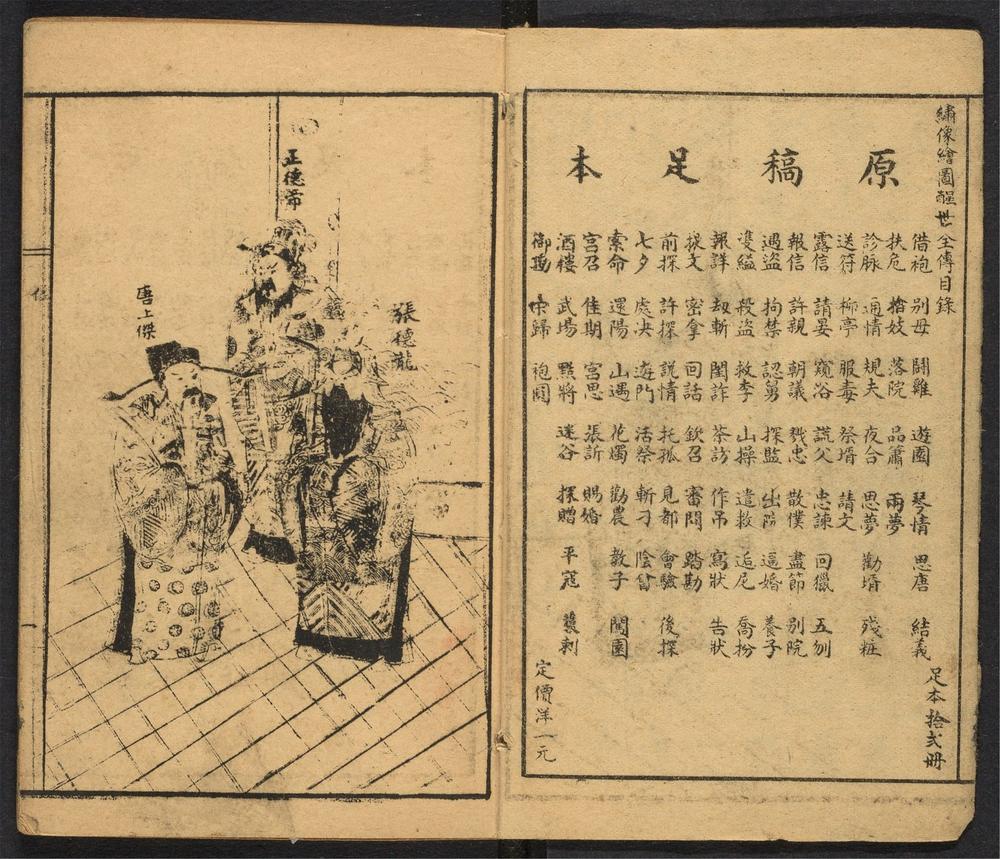 繡像繪圖醒世全傳目錄
原稿足本
借袍 別母 鬪雞 遊園 琴情 思唐 結義
扶危 搶妓 落院 品簫 兩夢
診脈 通情 規夫 夜合 思夢 勸壻 殘粧
送符 柳亭 服毒 祭壻 請文
露信 請宴 窺浴 謊父 忠諫 回獵 五刎
報信 許親 朝議 戮忠 散僕 盡節 別院
遇盜 拘禁 認舅 探監 逼婚 養子
雙縊 殺盜 救李 山操 遣救 追尼 喬扮
報詳 劫斬 閨詐 茶訪 作吊 寫狀 告狀
提文 密拿 回話 欽召 審問 踏勘
前探 許探 説情 托孤 見都 會驗 後探
七夕 處決 遊門 活祭 斬刁 陰會
索命 還陽 山遇 花燭 勸農 教子 鬧園
宮召 佳期 宮思 張訴 賜婚
酒樓 武場 點將 迷谷 探贈 平寇 襲剿
袍圓
足本拾弍冊
定價洋一元
正德帝
張德龍
唐上傑